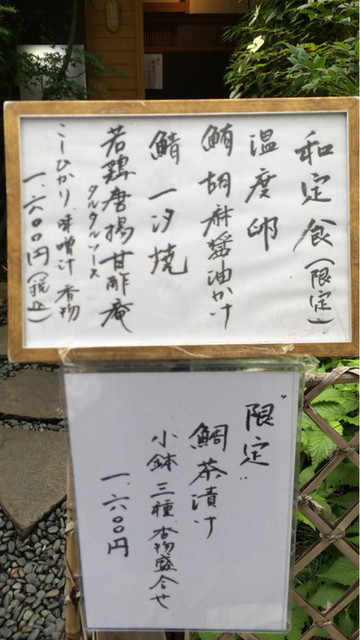 和定食(限定)
温度卵
鮪胡麻醤油かけ
鯖一汐焼
若鶏唐揚甘酢庵
タルタルソース
こしひかり 味噌汁 香物
一、六〇〇円(税込)
"限定"
鯛茶漬け
小鉢三種 香物盛合せ
一、六〇〇円